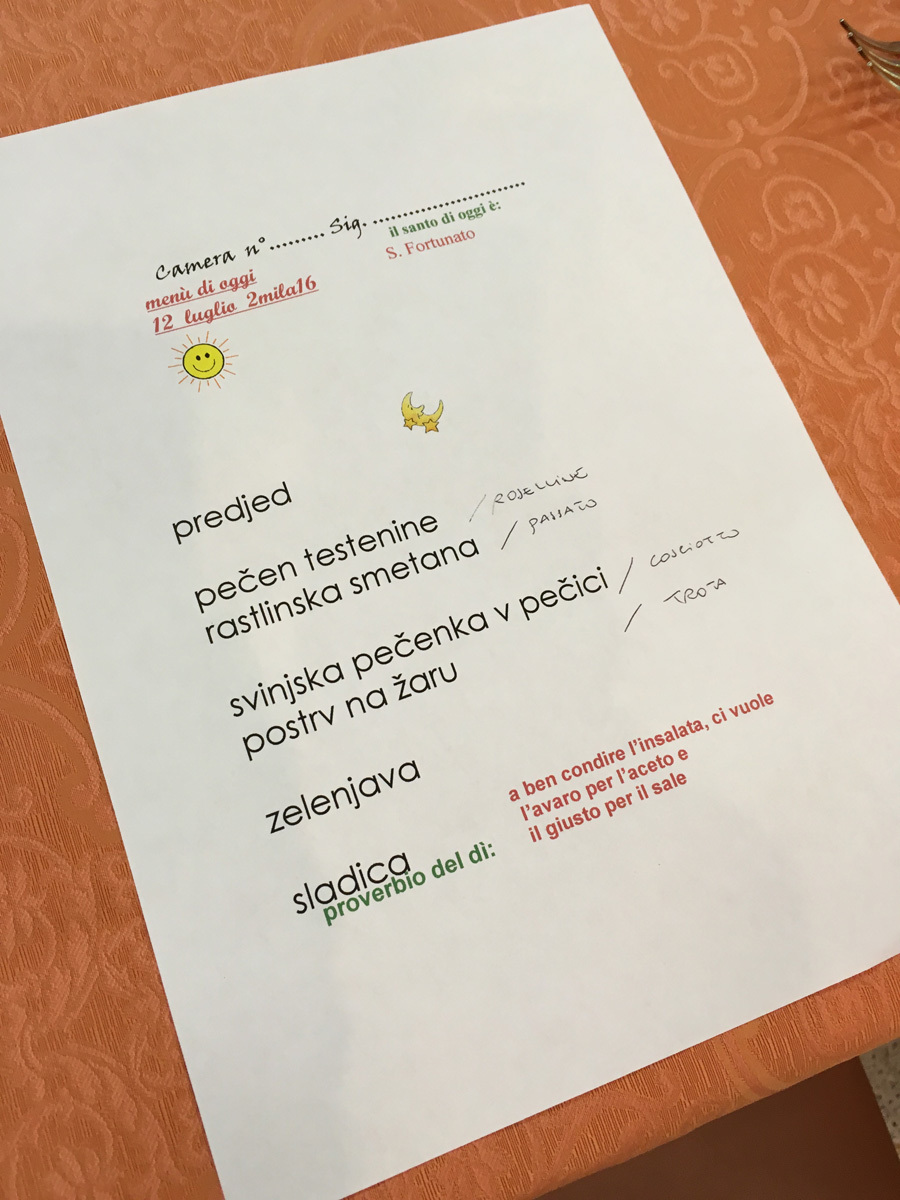 Camera n° ......... Sig. ..............................
il santo di oggi è:
S. Fortunato
menù di oggi
12 luglio 2mila16
predjed
pečen testenine / ROSELLINE
rastlinska smetana / PASSATO
svinjska pečenka v pečici / COSCIOTTO
postrv na žaru / TROTA
zelenjava
sladica
proverbio del dì:
a ben condire l'insalata, ci vuole
l'avaro per l'aceto e
il giusto per il sale